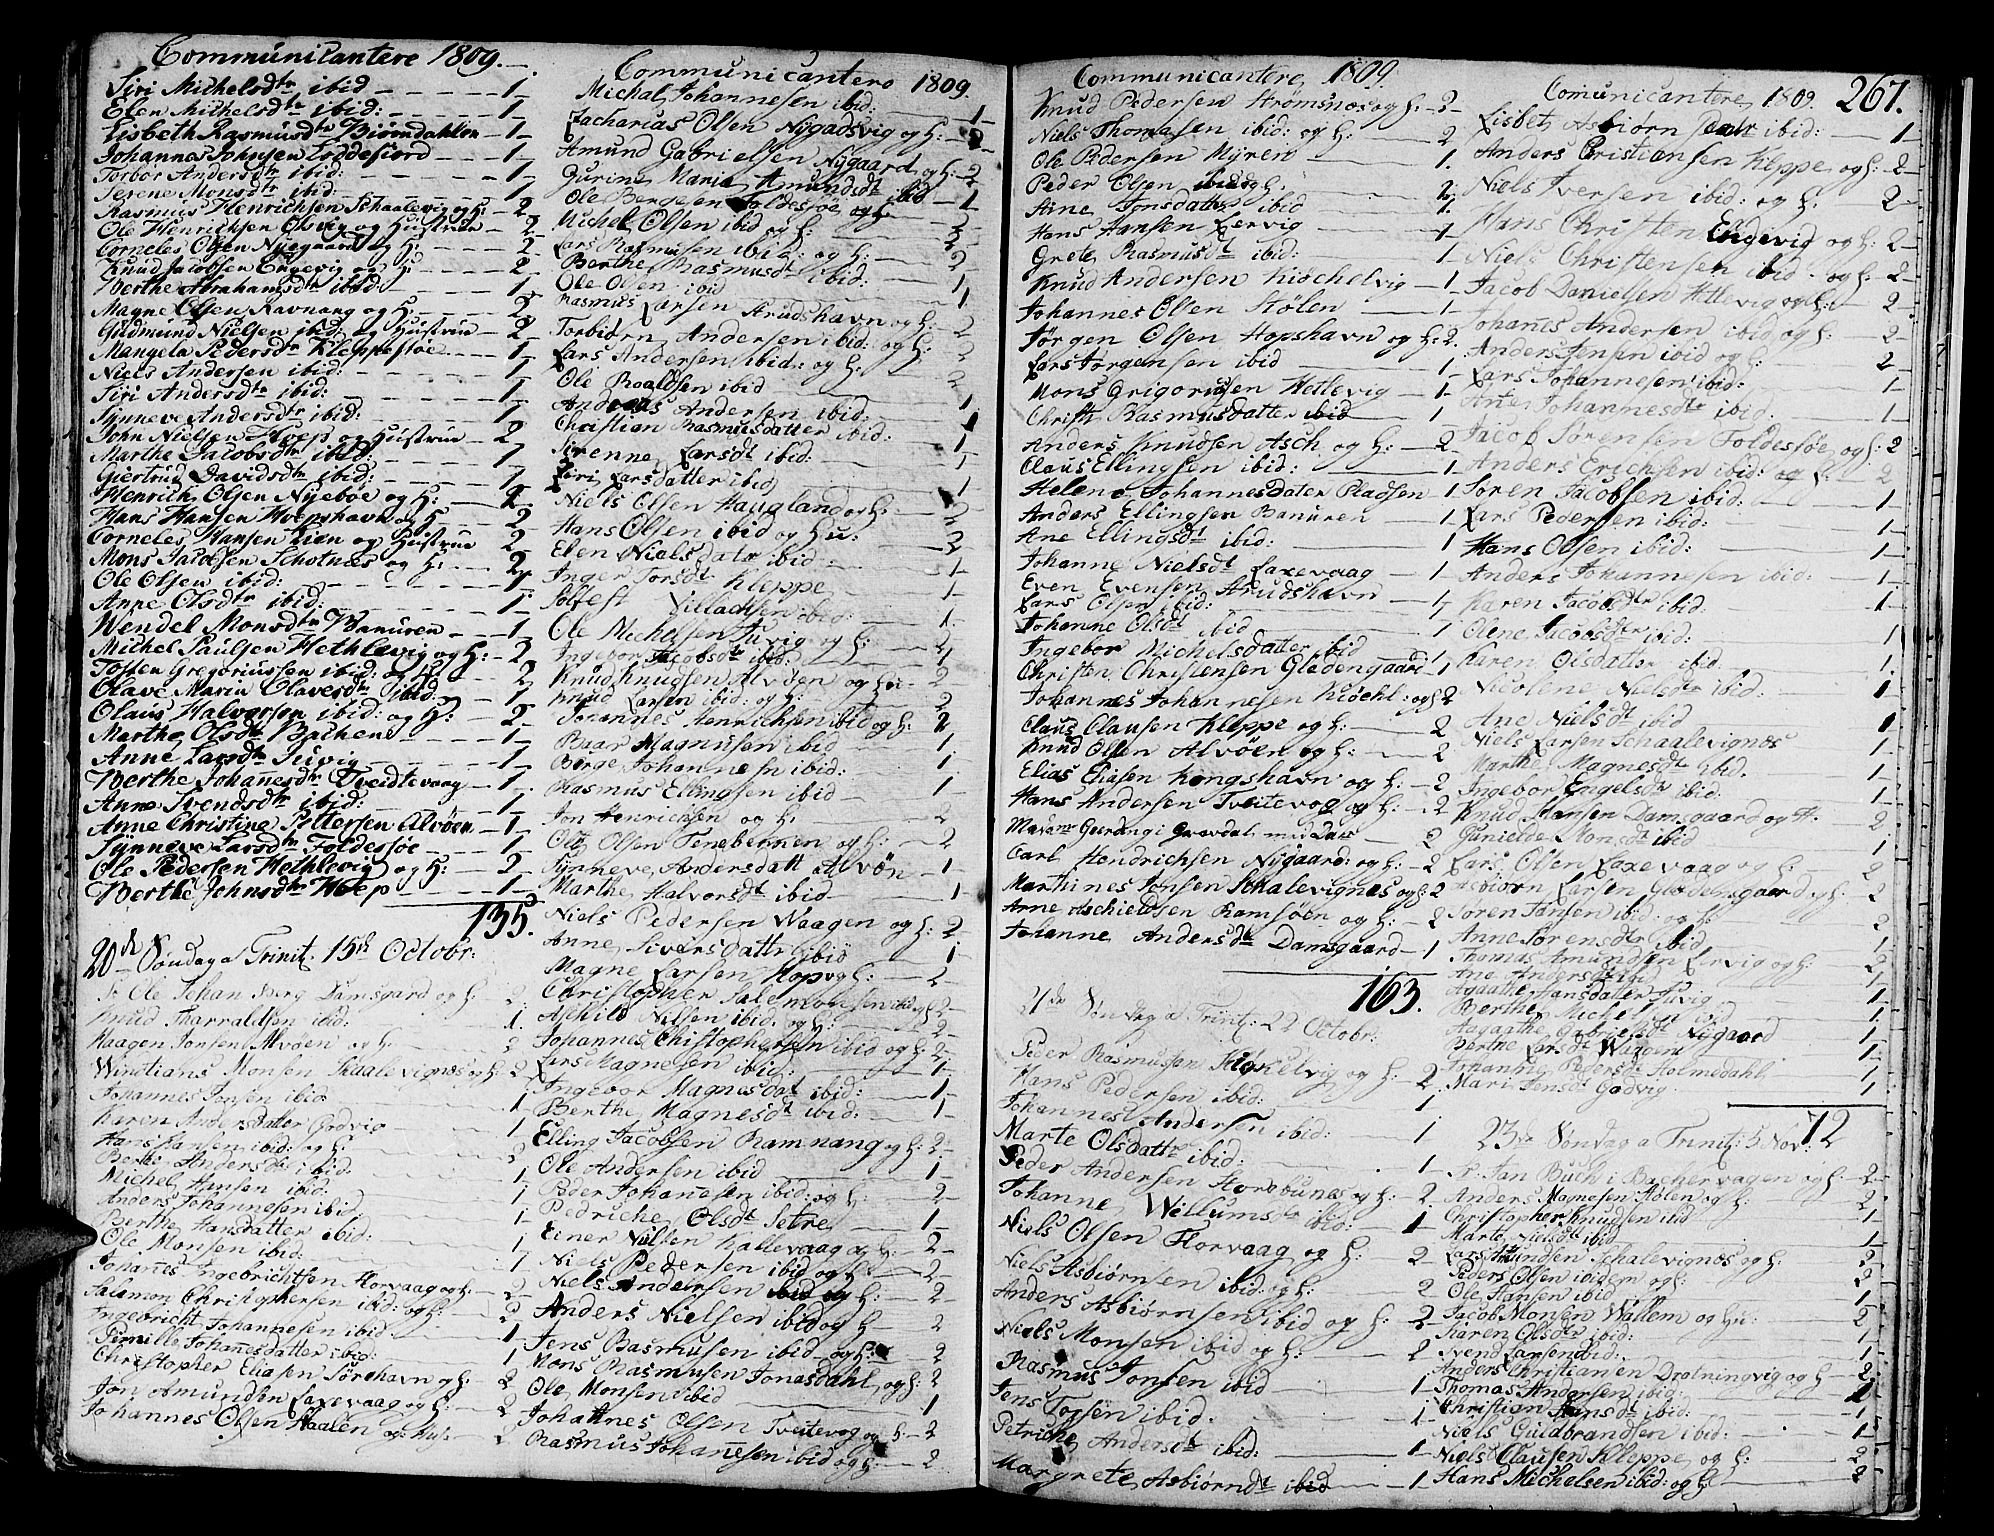 Communicantere 1809.
Siri Michelsdtr ibid - 1-
Elen Michelsdtr ibid: - 1-
Lisbeth Rasmusdtr Biørndahlen - 1-
Johannes Johnsen Loddefiord - 1-
Torbor Andersdtr ibid: - 1-
Serene Monsdtr ibid: - 1
Rasmus Henrichsen Schaalevig og H: - 2
Ole Henrichsen Olsvig og Hustrue - 2
Corneles Olsen Nyegaard og H: - 2
Knud Jacobsen Engevig og H: - 2
Berthe Abrahamsdtr ibid: - 1
Magne Olsen Ravnang og H: - 2
Gudmund Nielsen ibid: og Hustrue - 2
Mangela Pedersdtr Kleppestøe - 1
Niels Andersen ibid: - 1
Siri Andersdtr ibid: - 1
Synneve Andersdtr ibid: - 1
John Nielsen Hoep og Hustrue - 2
Marthe Jacobsdtr ibid: - 1
Giertrud Davidsdtr ibid: - 1
Henrich Olsen Nyebøe og H: - 2
Hans Hansen Hoepshavn og H - 2
Corneles Hansen Lien og Hustrue 2
Mons Jacobsen Schotnes og H: - 2
Ole Olsen ibid: - 1
Anne Olsdtr ibid: - 1
Wendel Monsdtr Banuren - 1
Michel Paulsen Hethlevig og H: - 2
Tosten Gregoriussen ibid: og H: 2
Olave Maria Olavesdtr ibid: - 1
Olaus Halversen ibid: og H: - 2
Marthe Olsdtr Bachene - 1
Anne Larsdtr Juvig - 1
Berthe Johanesdtr Tveidtevaag - 1
Anne Svendsdtr ibid: - 1
Anne Christine Pettersen Alvøen - 1
Synneve Larsdtr Foldesøe - 1
Ole Pedersen Hethlevig og H: - 2
Berthe Johnsdtr Hoep - 1
135.
20de Søndag a Trinit: 15de Octobr:
Sr Ole Johan Berg Damsgard og H: 2
Knud Harraldsen ibid: 1.
Haagen Jonsen Alvøen og H: 2
Monsen Skaalevignæs og H: 2
Johannes Jonsen ibid 1
Karen Andersdatter Godvig 1
Hans Hansen ibid: og H: 2
Berthe Andersdtr ibid. 1
Michel Hansen ibid: 1
Anders Johannesen ibid. 1-
Berthe Hansdatter ibid: 1
Ole Monsen ibid: 1
Johañes Ingebrichtsen Florvaag og H: 2
Salamon Christophersen ibid: og H: 2
Ingebricht Johannesen ibid. 1
Pernille Johanesdatter ibid: 1
Christopher Eliasen Sørehavn og H: 2
Jon Amundsen Laxevaag og H: 2
Johannes Olsen Haalen og Hus: 2
Communicantere 1809.
Michal Johannesen ibid: 1-
Zacharias Olsen Nygadsvig og H: 2-
Amund Gabrielsen Nygaard og H: - 2
Gurine Marie Amundsdt ibid - 1
Ole Bergesen Foldesøe og H: 2-
Michel Olsen ibid og H: 2
Lars Rasmusen ibid: og H: 2
Berthe Rasmusdt ibid: 1
Ole Olsen ibid 1
Rasmus Larsen Knudshavn og H: 2
Torbiørn Andersen ibid: og H: 2
Lars Andersen ibid: og H: 2
Ole Roaldsen ibid 1
Andreas Andersen ibid: 1
Christian Rasmusdatter ibid: 1
Sirenne Larsdt ibid: 1
Ziri Larsdatter ibid 1
Niels Olsen Haugland og H: 2
Hans Olsen ibid og Hu: - 2
Elen Nielsdatr ibid: 1-
Inger Torsdt Kleppe 1-
ibid: 1.
Ole Michelsen Juvig og H: 2
Ingebor Jacobsdtr ibid: 1
Knud Knudsen Alvøen og Hu: - 2
Knud Larsen ibid: og H: 2
Johannes Henrichsen ibid og H: 2
Baar Magnusen ibid 1.
Berge Johannesn ibid: 1.
Rasmus Ellingsen ibid 1-
Jon Henrichsen og H 2
Ole Olsen Tenebennen og H: 2
Synneve Andersdatt Alvøn - 1
Marthe Halvorsdt ibid 1
Niels Pedersen Waagen og H: 2-
Anne Siversdattr ibid 1-
Magne Larsen Hop og H: 2
Christopher Salemonsen ibid og H: 2-
Aschild Nilsen ibid: og H: 2-
Johannes Christophersen ibid og H: 2-
Lars Magnesen ibid: 1-
Ingebor Magnesdat ibid: 1-
Berthe Magnesdt ibid: 1-
Elling Jacobsen Ramnang og H: 2-
Ole Andersen ibid 1-
Peder Johañesen ibid: og H: 2-
Pedriche Olsdt Setre 1-
Einer Nilsen Kallevaag og H: 2-
Niels Pedersen ibid og H: 2-
Niels Andersen ibid og H: 2-
Anders Nielsen ibid og H 2
Jens Rasmusen ibid og H: 2
Mons Rasmusen Jonasdahl og H: 2
Ole Monsen ibid 1
Johañes Olsen Tveitevog og H: - 2
Rasmus Johannesen ibid og H: - 2
Communicantere 1809.
Knud Pedersen Strømsnæs og H: 2-
Niels Thomasen ibid: og H: 2
Ole Pedersen Myren 1.
Peder Olsen ibid og H: 2.
Arne Jonsdatr ibid 1.
Hans Hansen Lervig 1-
Grete Rasmusdt ibid: 1-
Knud Andersen Kiøchelvig - 1
Johannes Olsen Stølen 1-
Jørgen Olsen Hopshavn og H: 2.
Lars Jørgensen ibid 1-
Mons Grigoriusen Hetlevig - 1-
Christi Rasmusdatter ibid 1
Anders Knudsen Asch og H: - 2
Claus Ellingsen ibid: 1
Helene Johannesdater Pladsen 1
Anders Ellingsen Banuren - 1
Ane Ellingsdt ibid: 1
Johanne Nielsdt Laxevaag - 1
Even Evensen Knudshavn - 1
Lars Olsen ibid: 1
Johanne Olsdt ibid 1
Ingebor Michelsdatter ibid 1
Christen Christensen Gladengaard 1
Johannes Johannesen Kiøchl: og H 2
Claus Clausen Kleppe og H: 2
Knud Olsen Alvøen og H: 2
Elias Eliasen Kongshavn og H: - 2
Hans Andersen Tveitevog og H: - 2
Madame Grøndal med Datr 2
Carl Hendrichsen Nygaard: og H: - 2
Marthines Jonsen Schalevignes og H: 2
Arne Aschieldsen Ramsøen og H: 2
Johanne Andersdt Damsgaard - 1
163.
21de Søndag a Trinit: 22 Octobr:
Peder Rasmusen Kiøkelvig og H: 2
Hans Pedersen ibid: 1
Johannes Andersen ibid: 1
Marte Olsdattr ibid: 1-
Peder Andersen og H: 2
Johanne Willumsdtr ibid: 1-
Niels Olsen Florvaag og H: 2
Niels Asbiørnsen ibid: og H: 2
Anders Asbiørnsen ibid og H: 2-
Niels Monsen ibid og H: 2
Rasmus Jonsen ibid 1-
Jens Torsen ibid. 1
Petriche Andersdt ibid: 1-
Margrete Asbiørndt ibid 1
Comunicantere 1809. 267.
Lisbet Asbiørn ibid: 1
Anders Christiansen Kleppe og H: 2-
Niels Iversen ibid: og H. 2-
Hans Christen Engevig og H: 2-
Niels Christensen ibid. og H: 2-
Jacob Danielsen Hetlevig og H: 2-
Johañes Andersen ibid og H: 2
Anders Jensen ibid og H: 2
Lars Johannesen ibid: 1-
Ane Johannesdtr ibid. 1
Jacob Sørensen Foldesøe og H: 2
Anders Erichsen ibid: og H: 2
Søren Jacobsen ibid: 1
Lars Pedersen ibid: 1-
Hans Olsen ibid: 1
Anders Johannesen ibid: 1-
Karen Jacobdtr ibid. 1-
Olene Jacobsdtr ibid: 1
Karen Olsdatter ibid. 1
Nicolene Nielsdtr ibid: 1
Ane Nielsdt ibid 1
Niels Larsen Schaalevignæs 1
Marthe Magnesdt ibid. 1-
Ingebor Engelsdt ibid: 1-
Knud Hansen Damsgaard og H. 2
Gunielde Monsdt ibid 1
Lars Olsen Laxevaag og H: 2
Asbiørn Larsen Gladensgaard og H: 2
Søren Jansen ibid: og H: 2
Anne Sørensdtr ibid 1
Thomas Amundsen Lervig og H: 2
Ane Andersdt ibid 1
Agaathe Hansdatter Juvig 1
Berthe Michelsdt ibid 1
Aagaathe Gabrielsdt Nygaard 1
Berthe Larsdt Waagen 1-
Johanne Pedersdt Holmedahl 1-
Mari Jensdt Godvig 1
72
23de Søndag a Trinit: 5 Nov:
Sr Jan Buch i Bachervagen og H: 2-
Anders Magnesen Stølen og H: 2
Christopher Knudsen ibid 1-
Marte Nielsdt ibid 1
Lars Amundsen Schalevignæs og H: 2
Peder Olsen ibidem og H: 2
Ole Hansen ibid 1
Jacob Monsen Wallem og Hu: 2
Karen Olsdtr ibid: 1
Svend Larsen ibid: 1-
Anders Christiansen Drotningvig og H - 2.
Thomas Andersen ibid: 1
Christian Hansdt ibid: 1
Niels Guldbrandsen ibid: 1
Niels Clausen Kleppe og H: 2
Hans Michelsen ibid: og H: 2